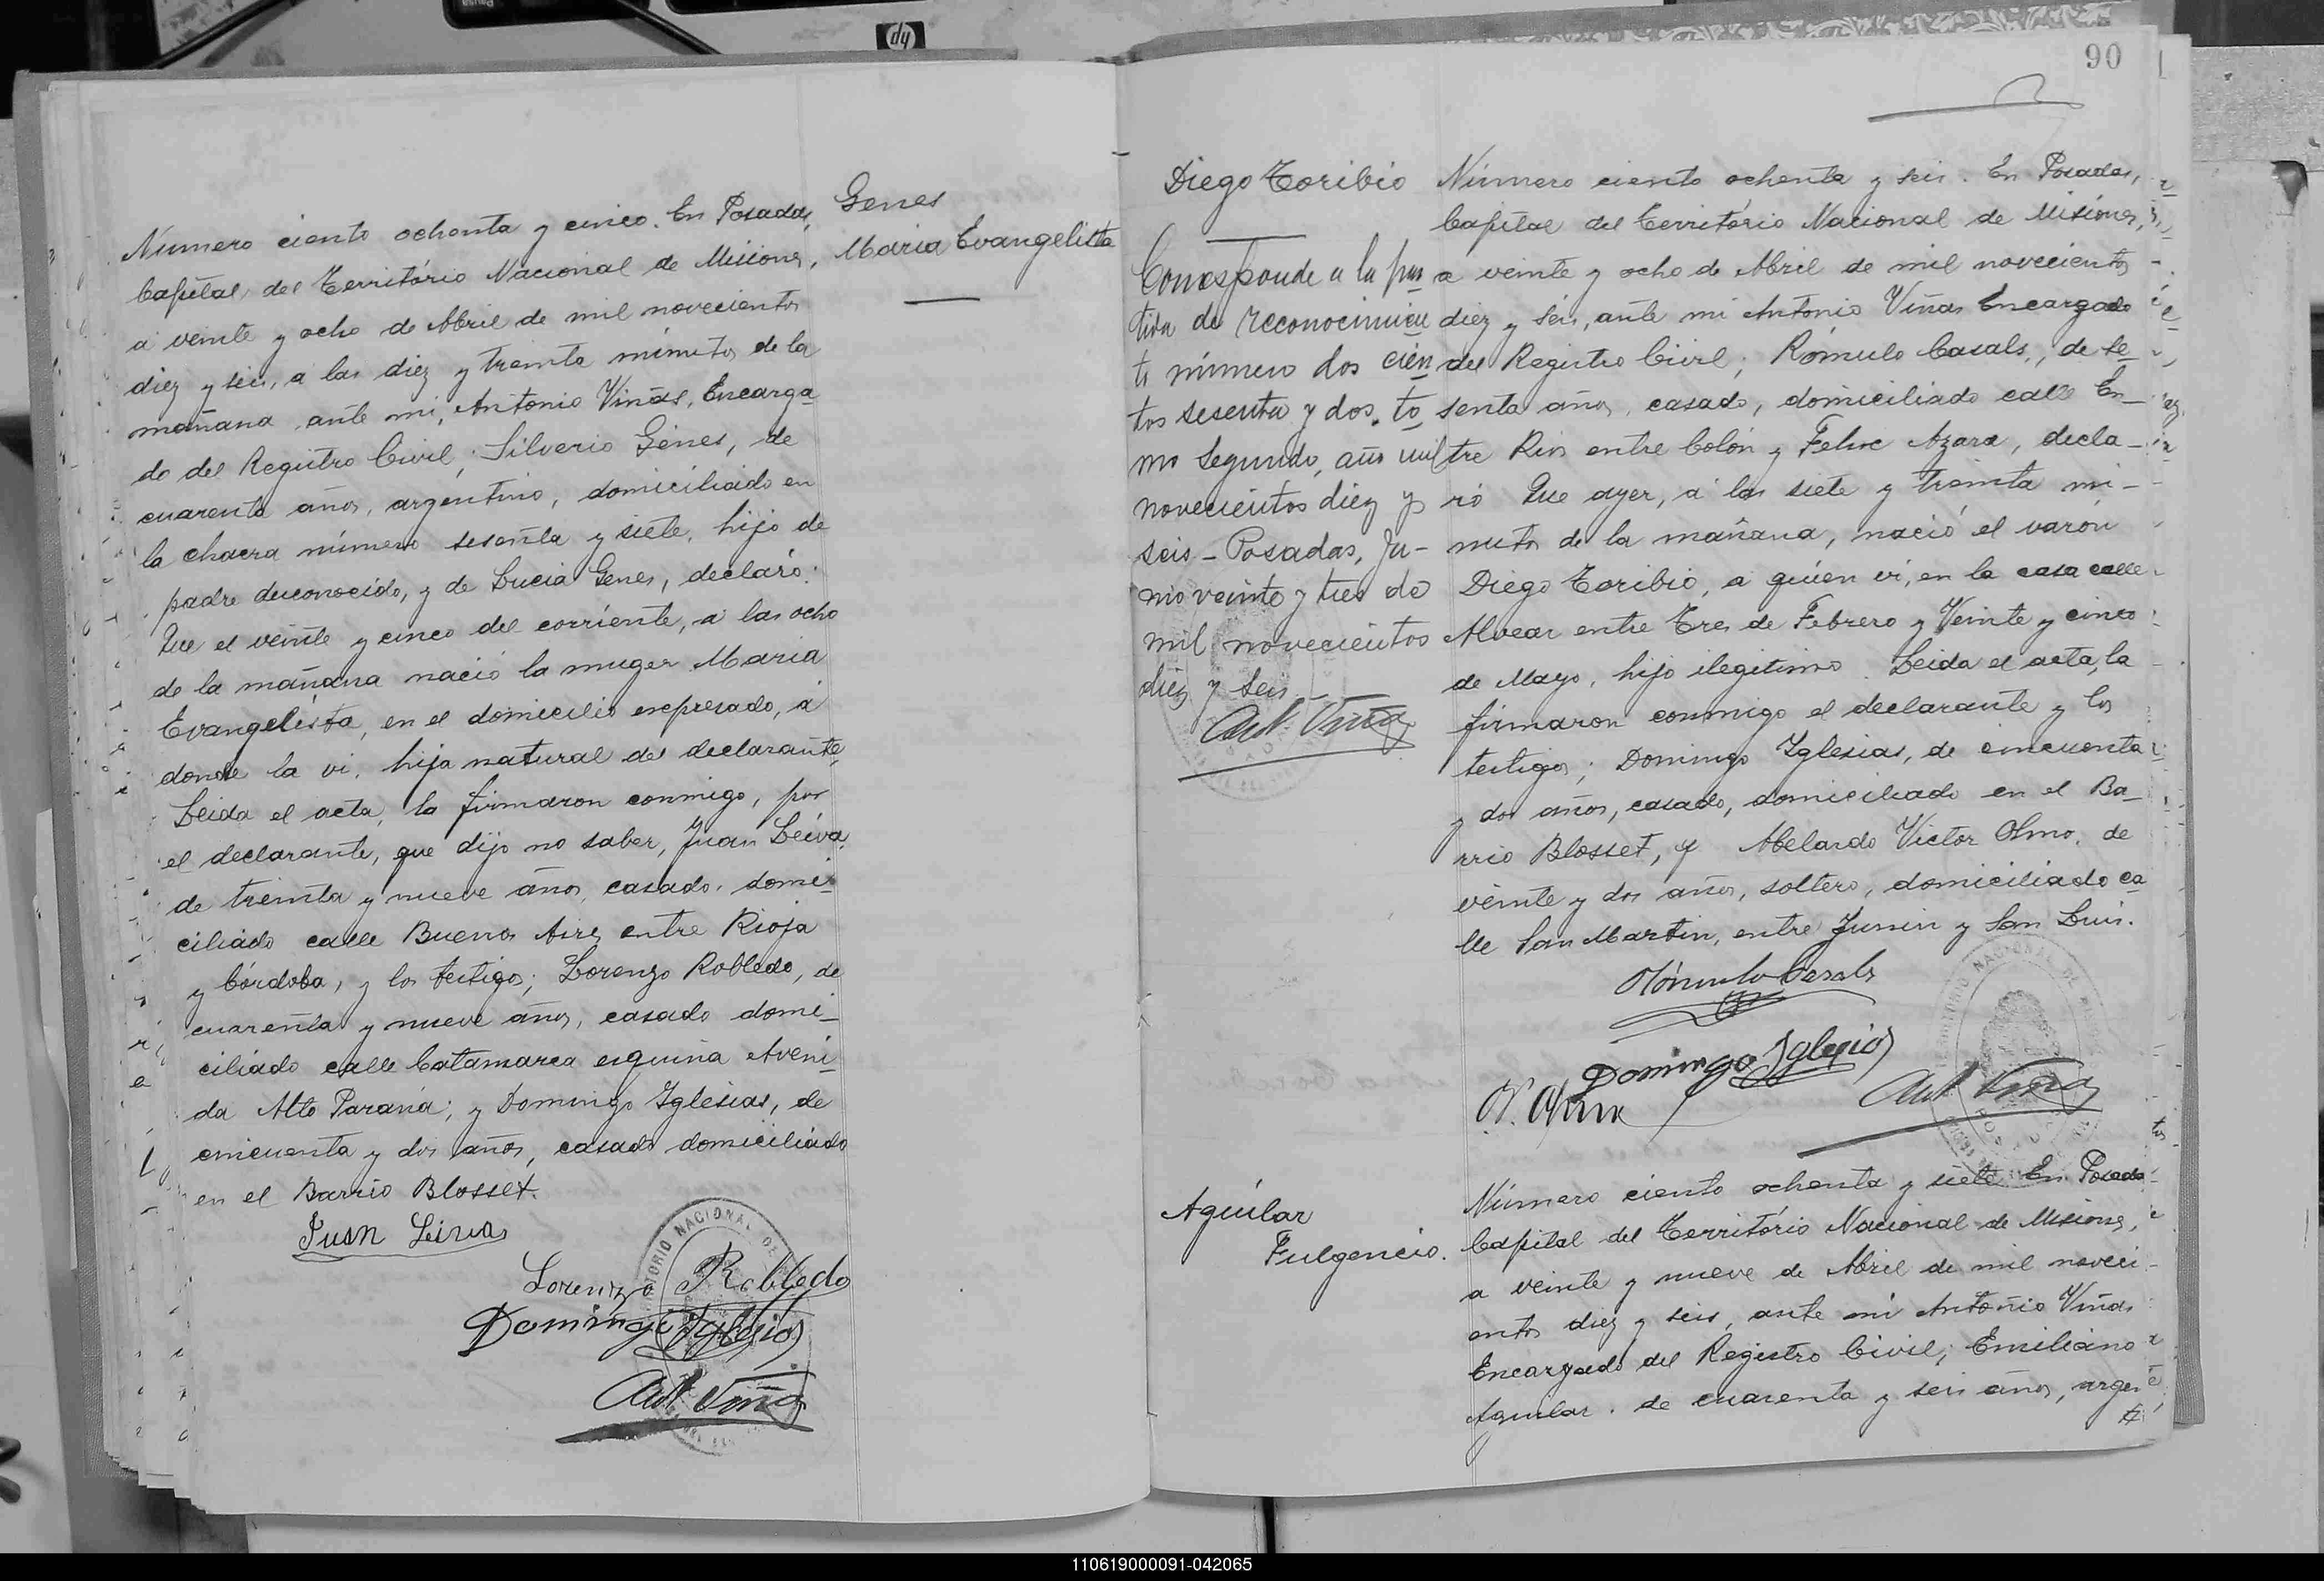 Genes
Maria Evangelista
Número ciento ochenta y cinco. En Posadas,
Capital del Território Nacional de Misiones,
a veinte y ocho de Abril de mil novecientos
diez y seis, a las diez y treinta minutos de la
mañana, ante mi, Antonio Viñas, Encarga
do del Registro Civil; Silverio Génes, de
cuarenta años, argentino, domiciliado en
la chacra número sesenta y siete, hijo de
padre desconocido, y de Lucia Genes, declaró:
Que el veinte y cinco del corriente, a las ocho
de la mañana nació la muger Maria
Evangelista, en el domicilio expresado, a
donde la vi, hija natural del declarante.
Leida el acta, la firmaron conmigo, por
el declarante, que dijo no saber, Juan Leiva,
de treinta y nueve años, casado, domi-
ciliado calle Buenos Aires entre Rioja
y Córdoba, y los testigos; Lorenzo Robledo, de
cuarenta y nueve años, casado domi-
ciliado calle Catamarca esquina Aveni-
da Alto Paraná; y Domingo Iglesias, de
cincuenta y dos años, casado domiciliado
en el Barrio Blosset.
Juan Leiva
Lorenzo Robledo
Domingo Iglesias
Ant Viñas
90
Diego Toribio
Corresponde a la par
tida de reconocimien
to número dos cien
tos sesenta y dos, to
mo segundo, año mil
novecientos diez y
seis - Posadas, Ju-
nio veinte y tres de
mil novecientos
diez y seis -
Ant. Viñas
Número ciento ochenta y seis. En Posadas,
Capital del Território Nacional de Misiones,
a veinte y ocho de Abril de mil novecientos
diez y seis, ante mi Antonio Viñas Encargado
del Registro Civil; Rómulo Casals, de se-
senta años, casado, domiciliado calle En-
tre Rios entre Colón y Felix Azara, decla-
ró Que ayer, a las siete y treinta mi-
nutos de la mañana, nació el varón
Diego Toribio, a quien vi, en la casa calle
Alvear entre Tres de Febrero y Veinte y cinco
de Mayo, hijo ilegitimo. Leida el acta, la
firmaron conmigo el declarante y los
testigos; Domingo Iglesias, de cincuenta
y dos años, casado, domiciliado en el Ba-
rrio Blosset, y Abelardo Victor Olmo, de
veinte y dos años, soltero, domiciliado ca
lle San Martin, entre Junin y San Luis.
Rómulo Casals
Domingo Iglesias
Ant Viñas
Aguilar
Fulgencio.
Número ciento ochenta y siete En Posadas
Capital del Território Nacional de Misiones,
a veinte y nueve de Abril de mil noveci-
entos diez y seis, ante mi Antonio Viñas
Encargado del Registro Civil; Emiliano
Aguilar, de cuarenta y seis años, argen
110619000091-042065